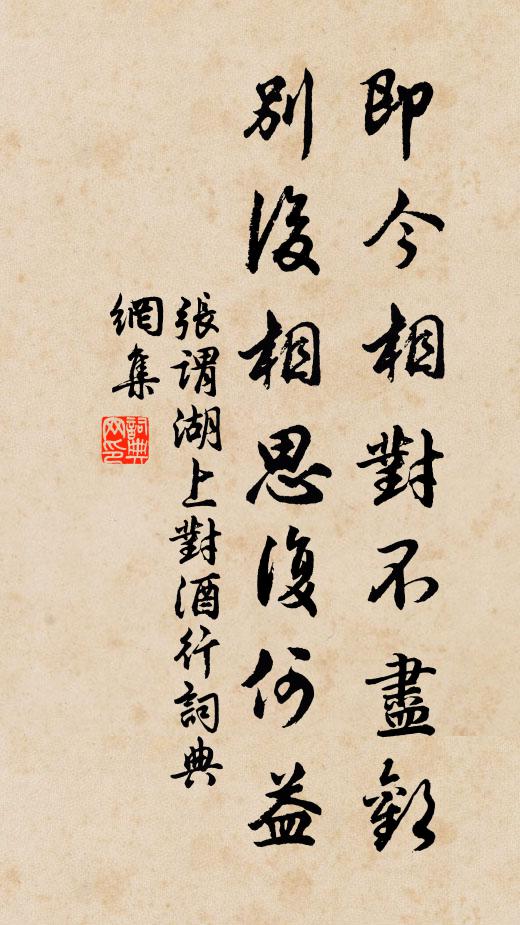 即今相對不盡歡
別後相思復何益
張謂湖上對酒行詞典
網集
詞典
網印